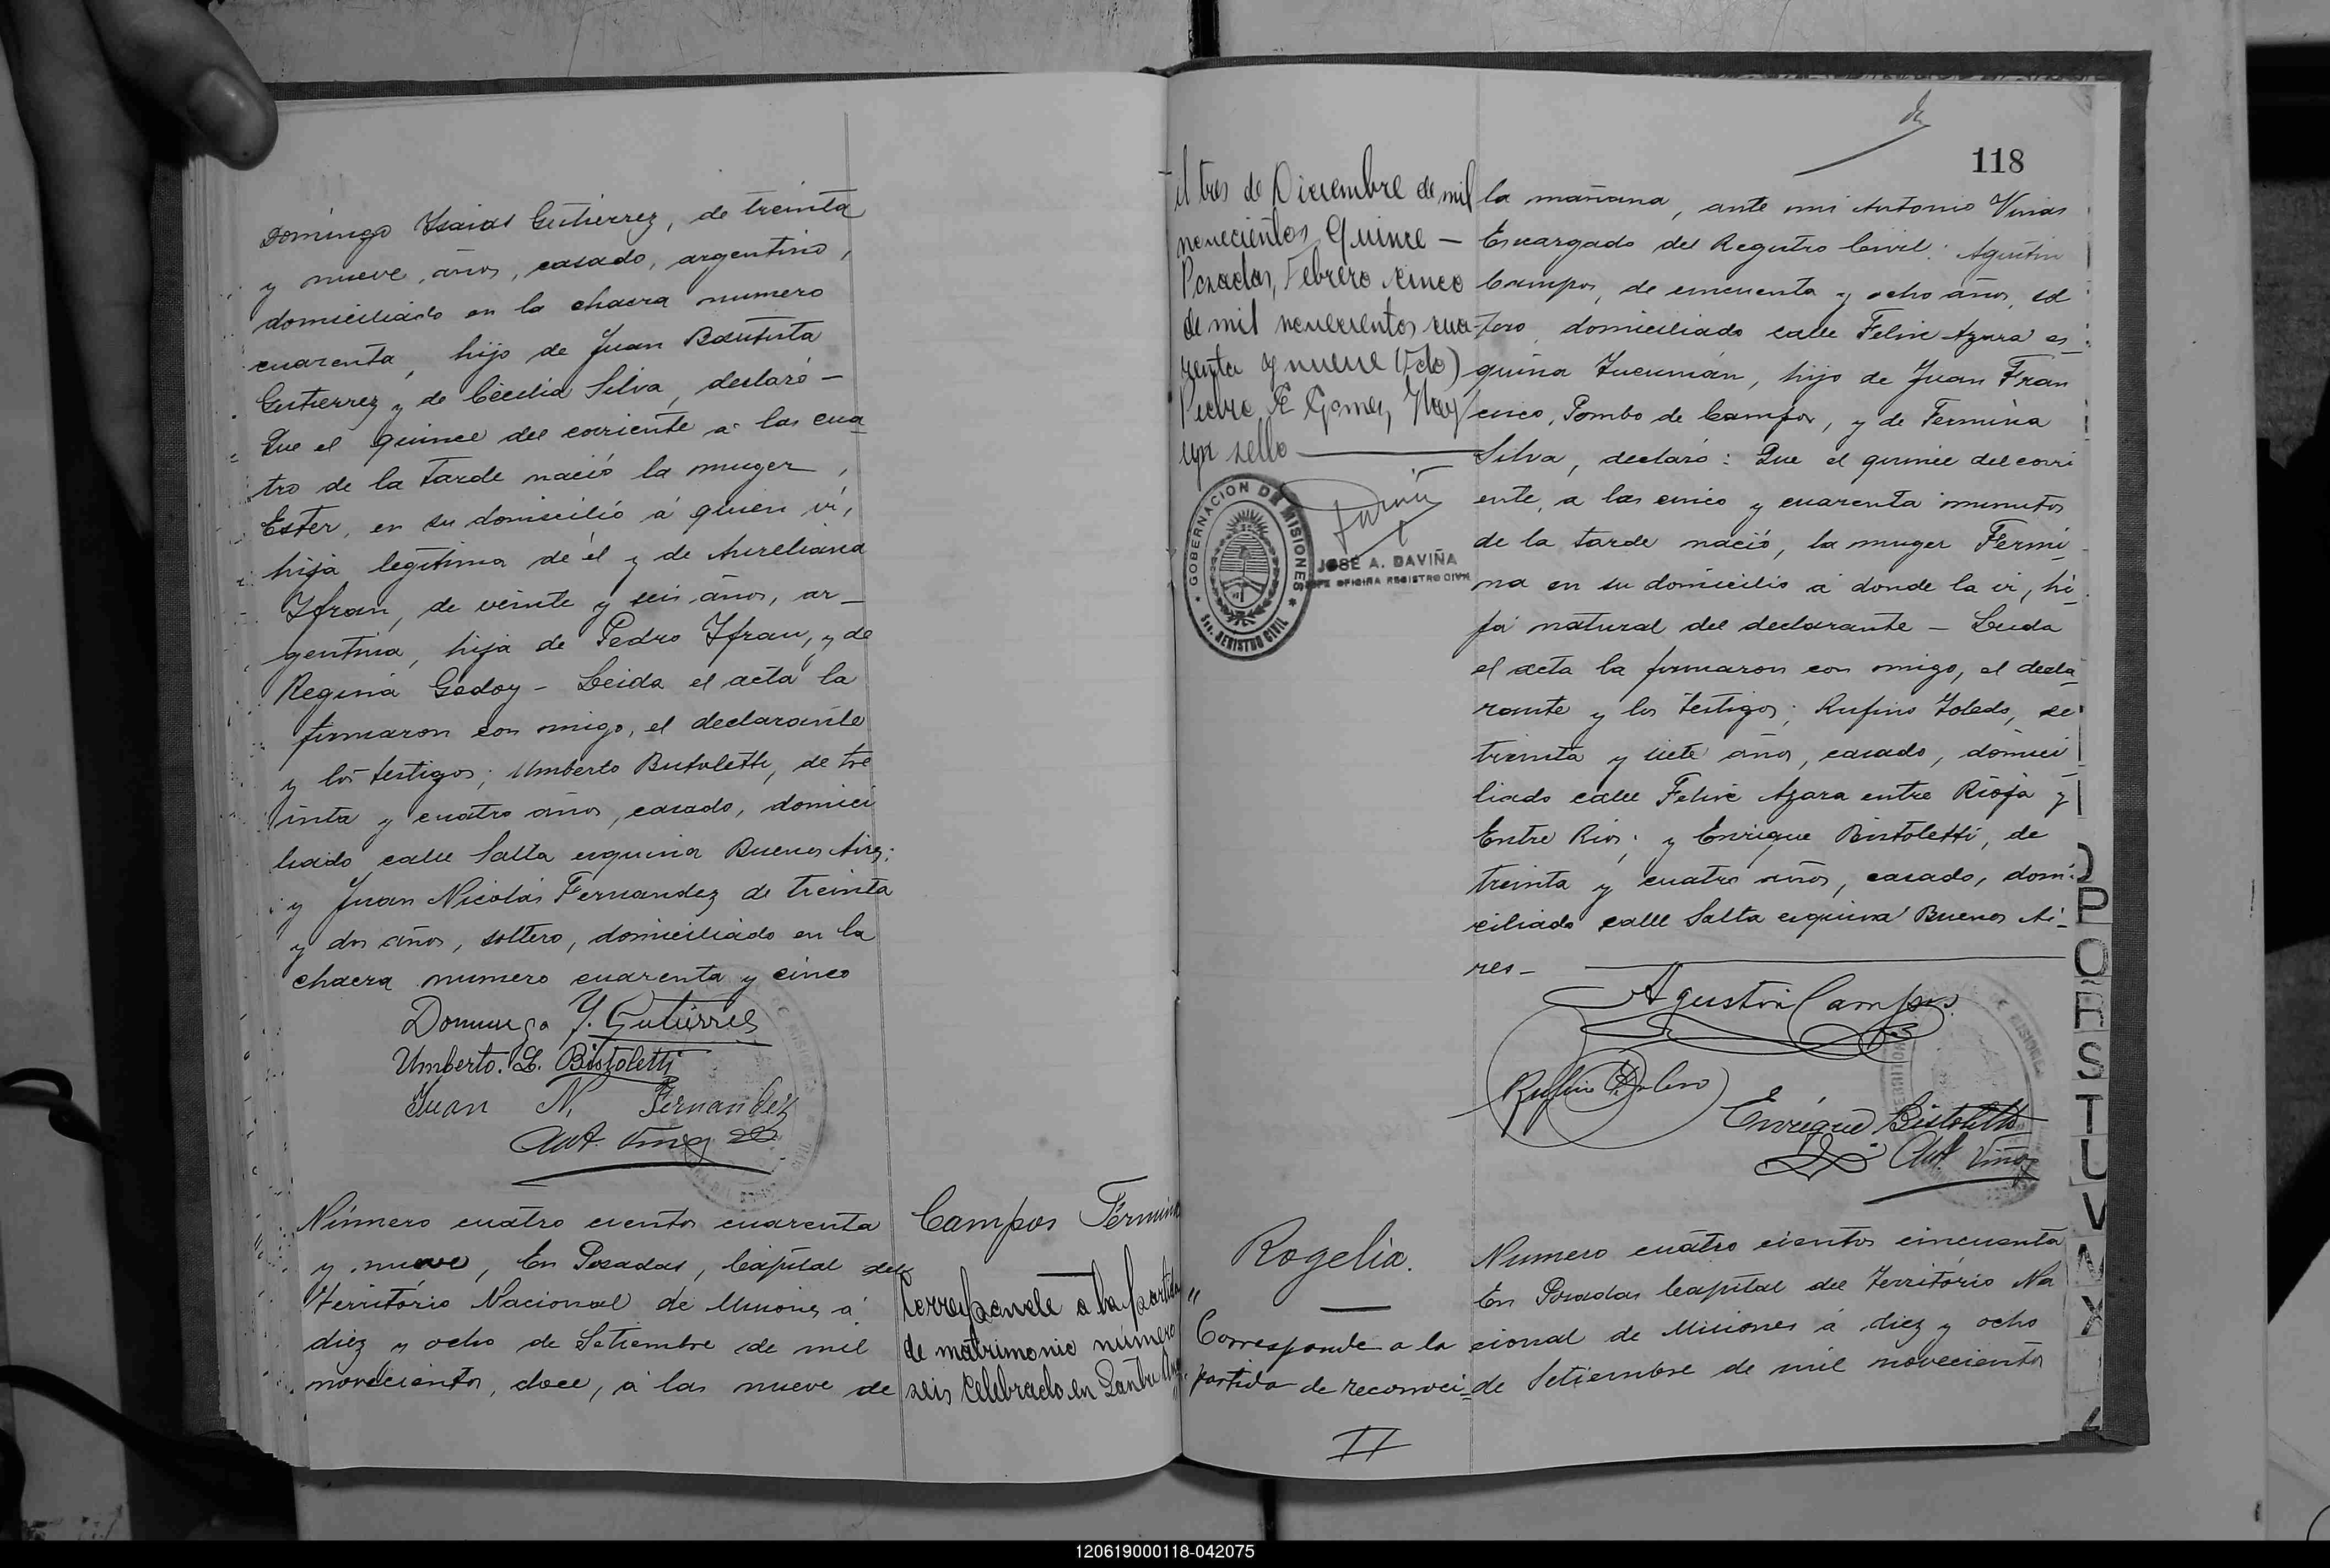 Domingo Isaias Gutierrez, de treinta
y nueve años, casado, argentino,
domiciliado en la chacra numero
cuarenta, hijo de Juan Bautista
Gutierrez y de Cecilia Silva, declaró —
Que el quince del corriente a las cua
tro de la tarde nació la muger,
Ester, en su domicilio á quien vi,
hija legitima de él y de Aureliana
Ifran, de veinte y seis años, ar_
gentina, hija de Pedro Ifran, y de
Regina Godoy - Leida el acta la
firmaron con migo, el declarante
y los testigos; Umberto Bistoletti, de tre
inta y cuatro años, casado, domici
liado calle Salta esquina Buenos Aires;
y Juan Nicolás Fernandez de treinta
y dos años, soltero, domiciliado en la
chacra numero cuarenta y cinco
Domingo Y. Gutierres
Umberto. L. Bistoletti
Juan N. Fernandez
Ant. Viñas
Número cuatro cientos cuarenta
y nueve, En Posadas, Capital del
Territorio Nacional de Misiones á
diez y ocho de Setiembre de mil
novecientos, doce, á las nueve de
Campos Fermina
Corresponde a la partida
de matrimonio número
seis celebrado en Santa Ana
el tres de Diciembre de mil
novecientos Quince —
Posadas, Febrero cinco
de mil novecientos cua-
renta y nueve (Fdo)
Pedro R Gomez Hay
un sello
GOBERNACION DE MISIONES
Sec. REGISTRO CIVIL
JOSÉ A. DAVIÑA
JEFE OFICINA REGISTRO CIVIL
118
la mañana, ante mi Antonio Viñas
Encargado del Registro Civil: Agustin
Campos, de cincuenta y ocho años, sol
tero, domiciliado calle Felix Azara es_
quina Tucumán, hijo de Juan Fran
cisco, Pombo de Campos, y de Fermina
Silva, declaró: Que el quince del corri
ente, a las cinco y cuarenta minutos
de la tarde nació, la muger Fermi
na en su domicilio á donde la vi, hi_
ja natural del declarante — Leida
el acta la firmaron con migo, el decla_
rante y los testigos; Rufino Toledo, de
treinta y siete años, casado, domici
liado calle Felix Azara entre Rioja y
Entre Rios; y Enrique Bistoletti, de
treinta y cuatro años, casado, domi
ciliado calle Salta esquina Buenos Ai_
res —
Agustin Campos
Enrique Bistoletti
Ant. Viñas
Rogelia.
Corresponde a la
partida de reconoci=
II
Numero cuatro cientos cincuenta
En Posadas Capital del Territorio Na
cional de Misiones á diez y ocho
de Setiembre de mil novecientos
P
Q
R
S
T
U
V
X
120619000118-042075